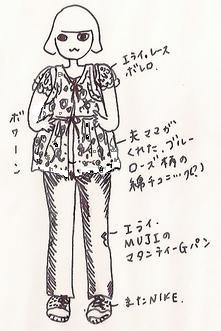 エライ.レース
ボレロ.
ボワーン
夫ママが
くれた.ブルー
ローズ柄の
綿チュニック(?)
エライ.
MUJIの
マタニティーGパン
またNIKE.